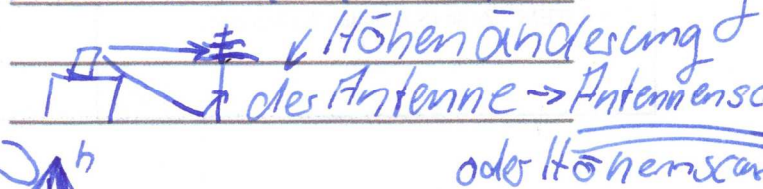 Höhenänderung
der Antenne → Antennensc
oder Höhenscan
h